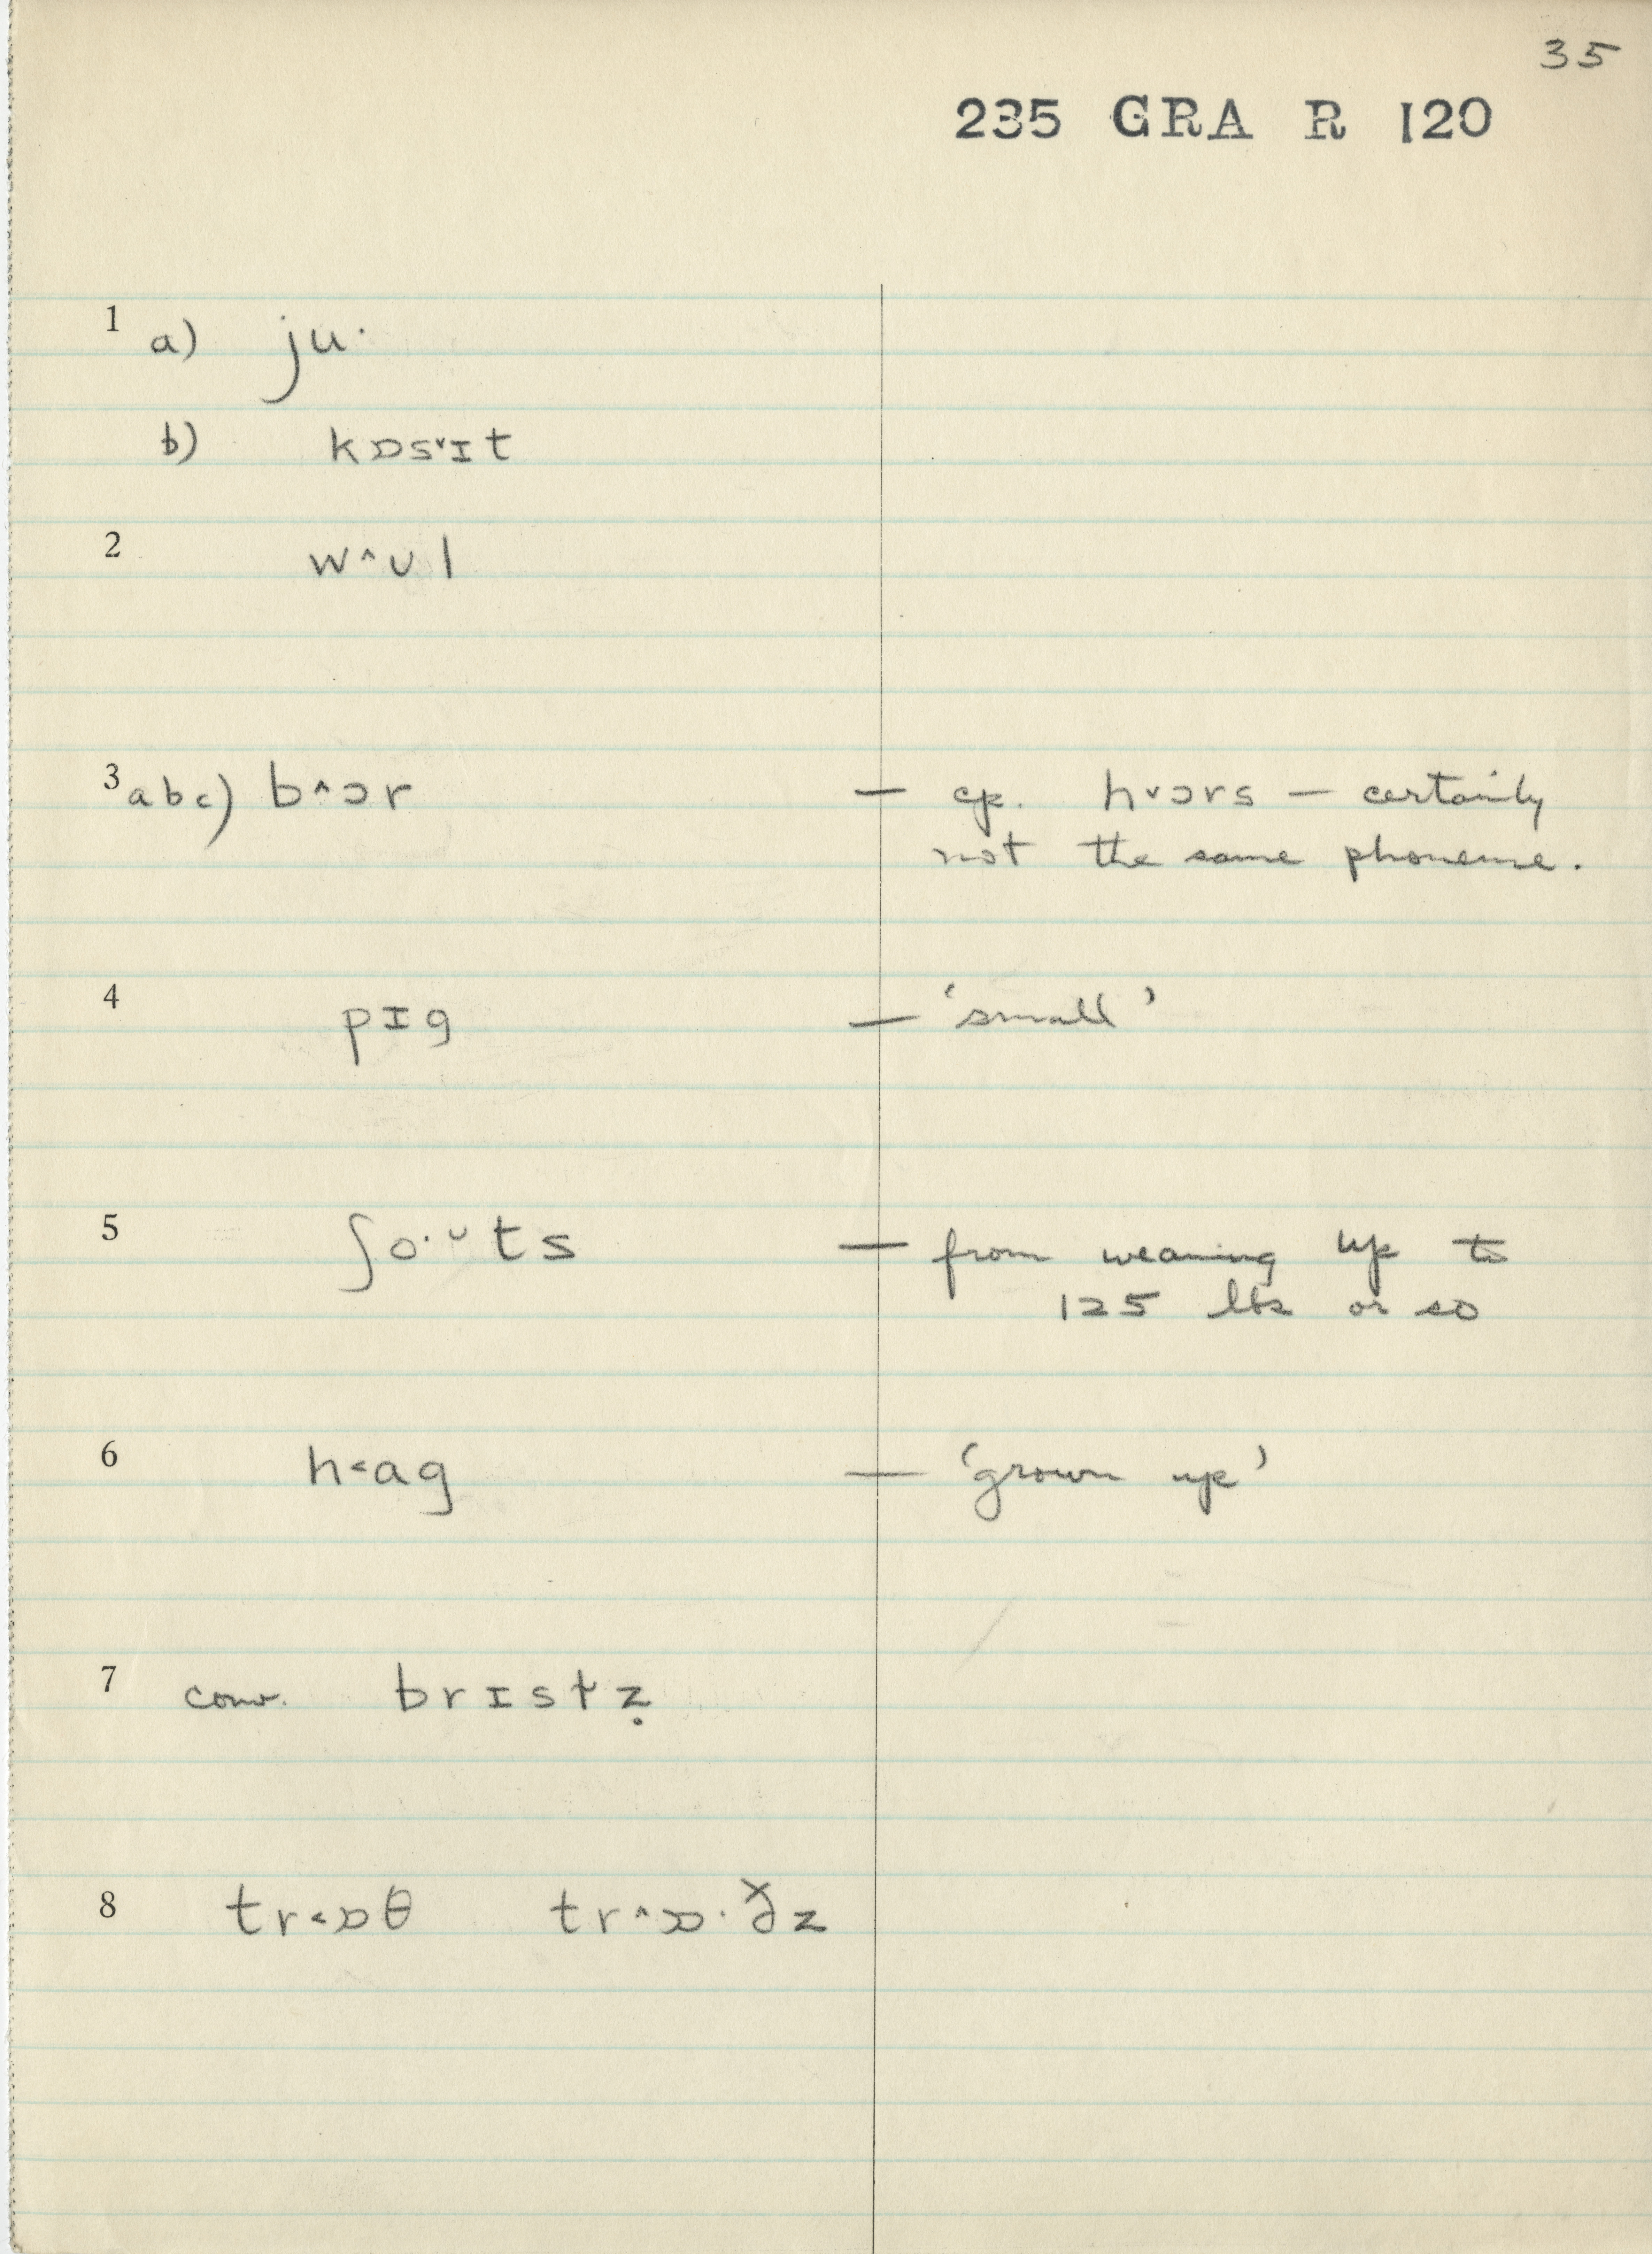 35
235 GRA R 120
1 a) ju·
b) kɒs˅ɪt
2 w^ʊl
3 abc) b^ɔr — cp. h˅ɔrs — certainly
not the same phoneme.
4 pɪg — 'small'
5 ʃo·ᵕts — from weaning up to
125 lbs or so
6 h<ag — 'grown up'
7 conv. brɪstz̩
8 tr<ɒθ tr^ɒ·ðz